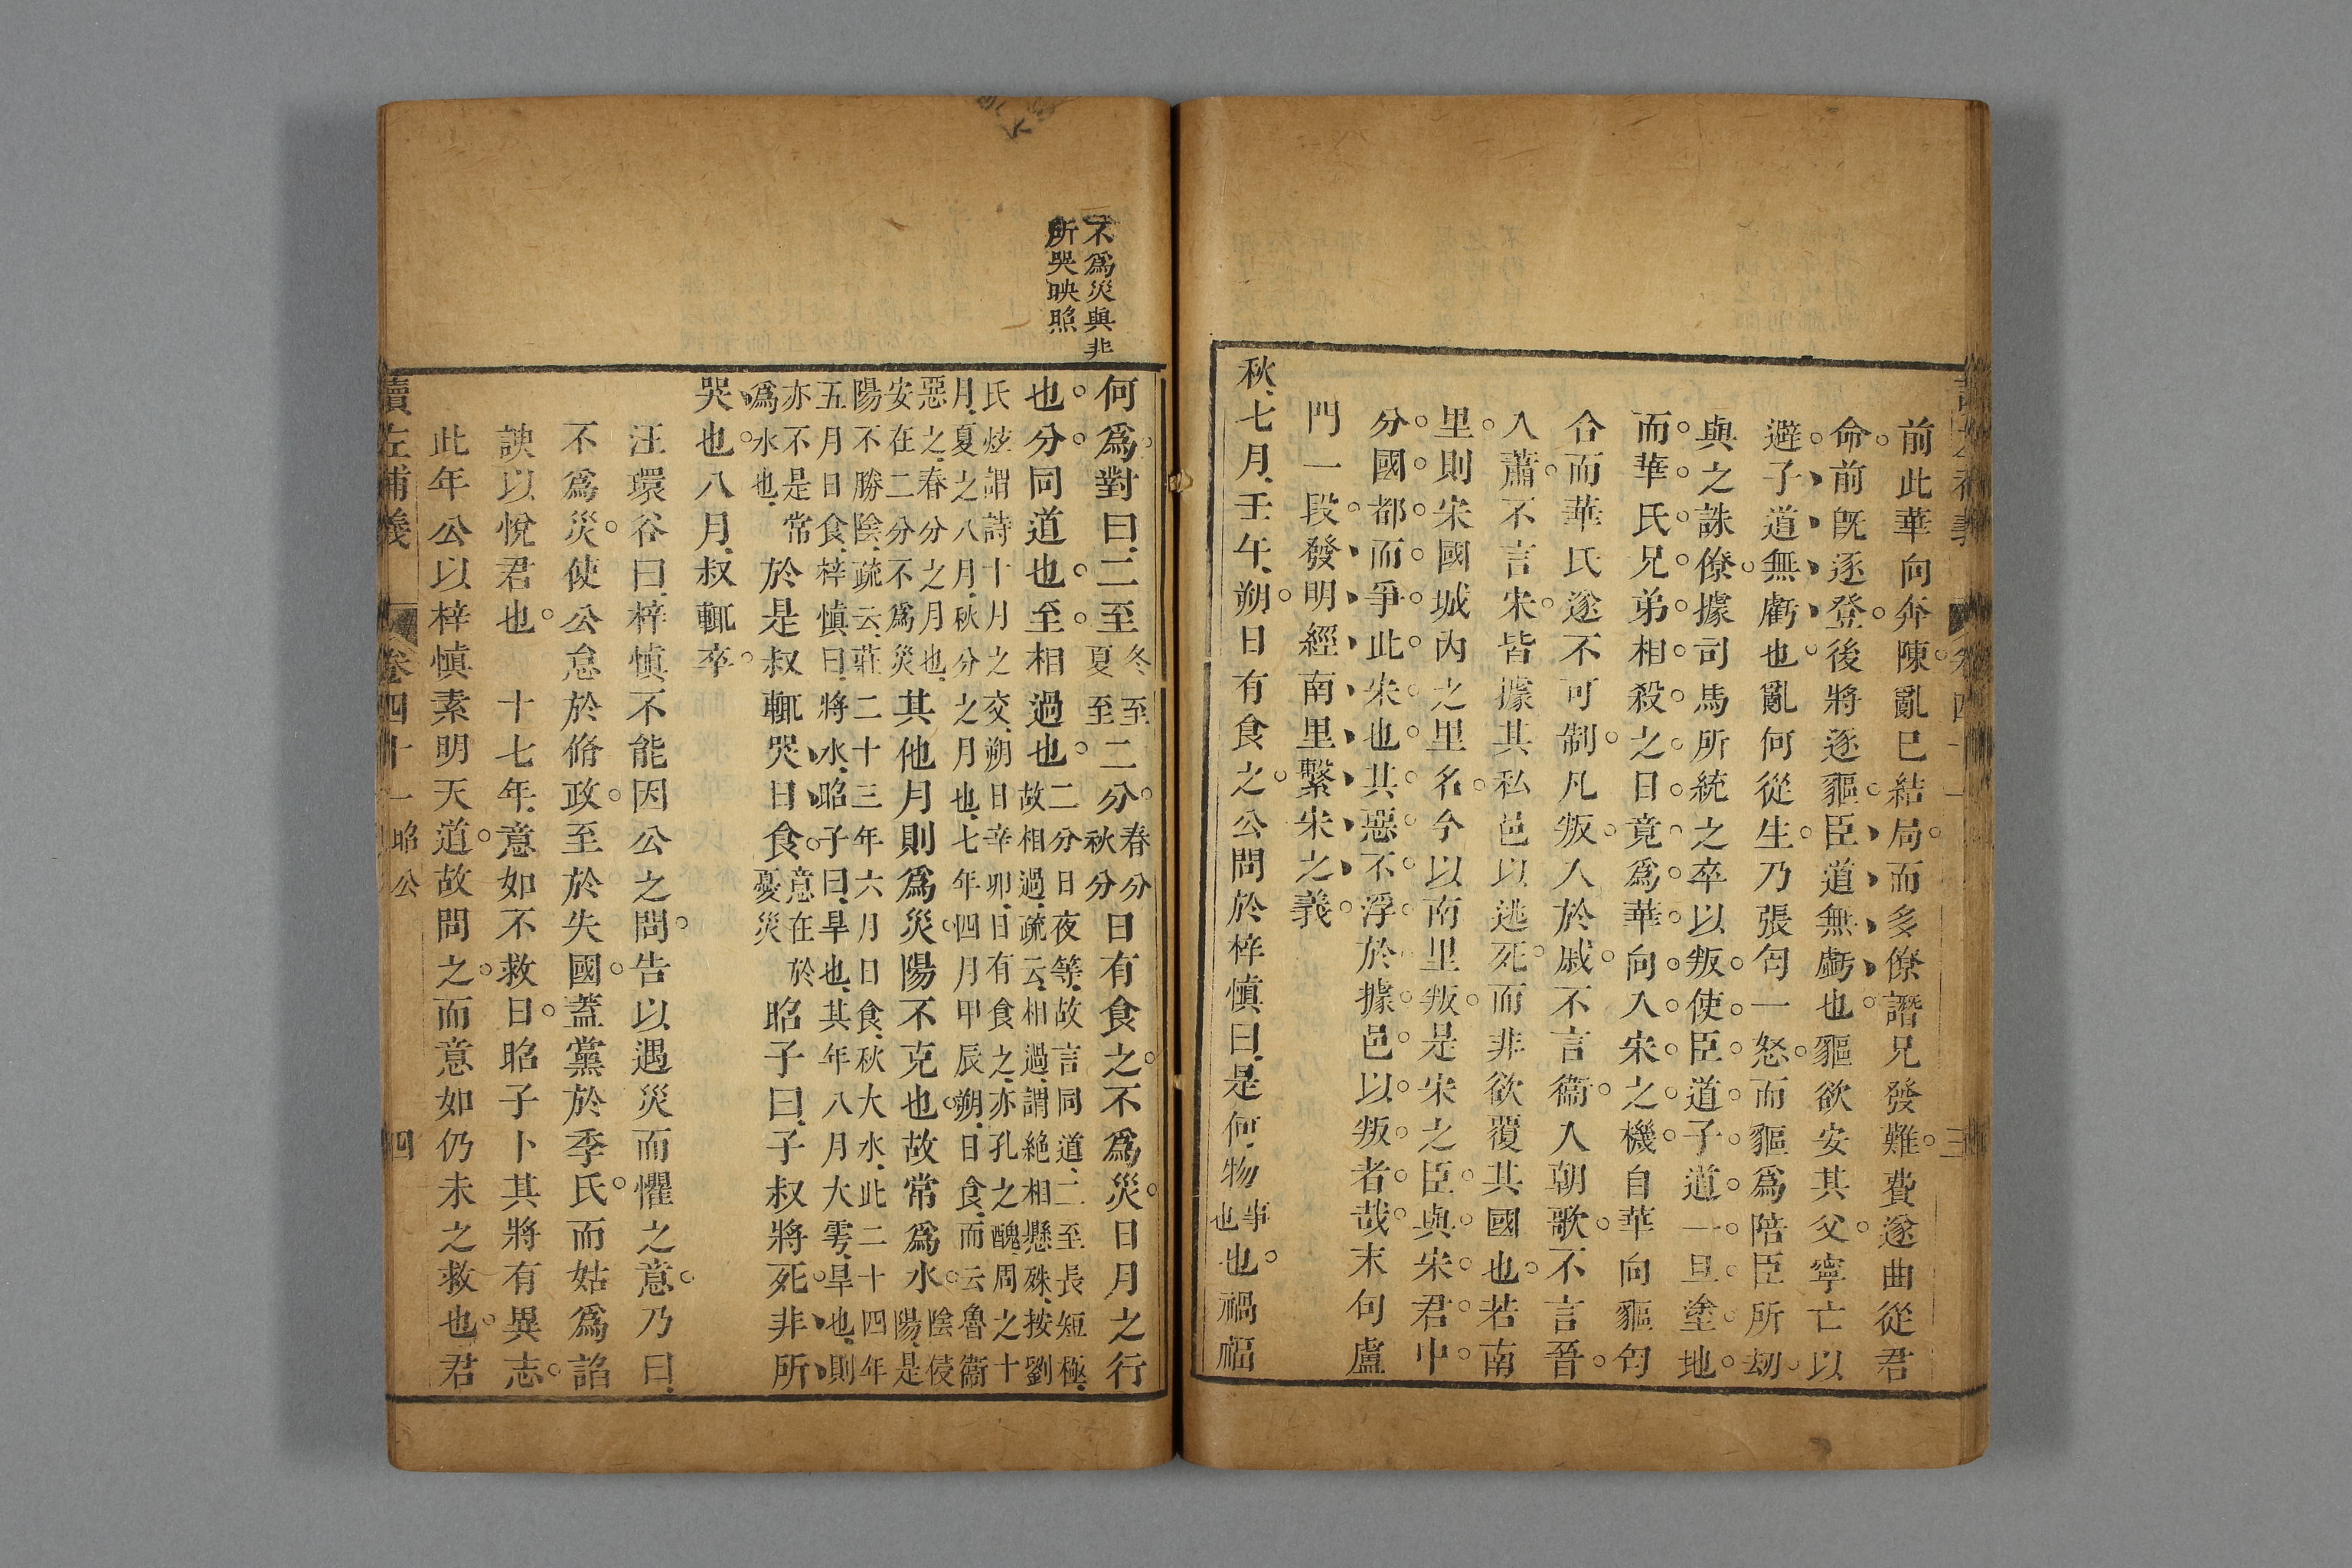 前此華向奔陳亂已結局而多僚譖兄發難費遂曲從君
命前既逐登後將逐貙臣道無虧也貙欲安其父寧亡以
避子道無虧也亂何從生乃張匄一怒而貙爲陪臣所刼
與之誅僚據司馬所統之卒以叛使臣道子道一旦塗地
而華氏兄弟相殺之日竟爲華向入宋之機自華向貙匄
合而華氏遂不可制凡叛人於戚不言衞入朝歌不言晉
入蕭不言宋皆據其私邑以逃死而非欲覆其國也若南
里則宋國城內之里名今以南里叛是宋之臣與宋君中
分國都而爭此宋也其惡不浮於據邑以叛者哉末句盧
門一段發明經南里繫宋之義
秋七月壬午朔日有食之公問於梓慎曰是何物事也也禍福
不爲災與非
所哭映照
何爲對曰二至冬至夏至二分春分秋分日有食之不爲災日月之行
也分同道也至相過也二分日夜等故言同道二至長短極
故相過疏云相過謂絶相懸殊按劉
氏炫謂詩十月之交朔日辛卯日有食之亦孔之醜周之十
月夏之八月秋分之月也七年四月甲辰朔日食而云魯衞
惡之春分之月也
安在二分不爲災其他月則爲災陽不克也故常爲水陰侵陽是
陽不勝陰疏云莊二十三年六月日食秋大水此二十四年
五月日食梓慎曰將水昭子曰旱也其年八月大雩旱也則
亦不是常
爲水也於是叔輒哭日食意在於憂災昭子曰子叔將死非所
哭也八月叔輒卒
汪環谷曰梓慎不能因公之問告以遇災而懼之意乃曰
不爲災使公怠於脩政至於失國蓋黨於季氏而姑爲諂
諛以悅君也　十七年意如不救日昭子卜其將有異志
此年公以梓慎素明天道故問之而意如仍未之救也君
讀左補義　卷四十一　昭公　四